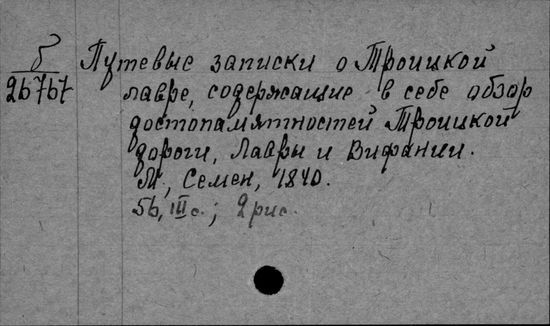 б Путевые записки о Троицкой
26767 лавре, содержащие в себе обзор
достопамятностей Троицкой
дороги, Лавры и Вифании.
М., Семен, 1840.
56, III с.; 2 рис.